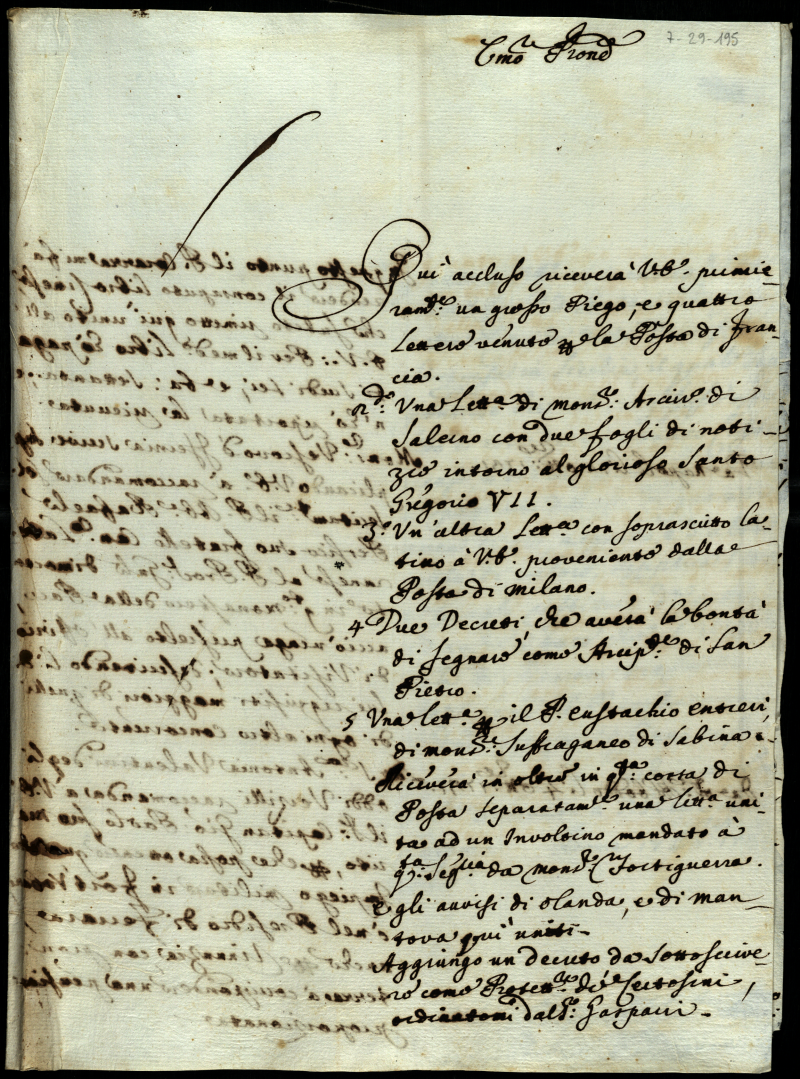 7-29-195
Emo Prone
Qui accluso riceverà V.E. primie-
ramte. un grosso Piego, e quattro
Lettere venute per la Posta di Fran-
cia.
2do. Una Letta. di monsr. Arciv.o di
Salerno con due fogli di noti-
zie intorno al glorioso Santo
Gregorio VII.
3o. Un'altra Letta. con soprascritto la-
tino à V.E. proveniente dalla
Posta di Milano.
4 Due Decreti che averà la bontà
di segnare come Arcipte. di San
Pietro.
5 Una letta. per il P. Eustachio entieri,
di monsr. Suffraganeo di Sabina.
Riceverà in oltre in qta. corsa di
Posta separatamte. una letta. uni-
ta ad un Involtino mandato à
qta. Segria. da monsr. Fortiguerra.
E gli avvisi di Olanda, e di Man-
tova quì uniti.
Aggiungo un decreto da sottoscrive-
re come Protettre. de Certosini,
ordinatomi dal Sr. Gasparri.